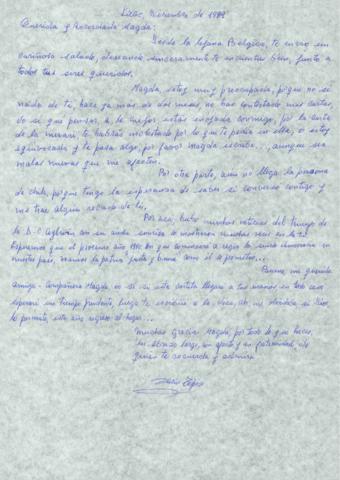 Querida y Recordada Magda:
Desde la lejana Bélgica, te envío un
cariñoso saludo, deseando sinceramente te encuentres bien, junto a
todos tus seres queridos.
Magda, estoy muy preocupado, porque no sé
nada de ti, hace ya más de dos meses no has contestado mis cartas,
no sé que pensar, a lo mejor estás enojada conmigo, por la carta
de la te habrás molestado por lo que te pedía en ella, o estoy
equivocado y te pasa algo, por favor Magda escribe..., aunque sea
malas nuevas que me afecten.
Por otra parte, aún no llega la persona
de Chile, porque tengo la esperanza de saber si converso contigo y
me trae algún recado de ti,
Por acá, hubo muchas noticias del triunfo de
la D.C. Aylwin con su ancha sonrisa lo mostraron muchas veces en la T.V.
Esperamos que el próximo año 1990 en que comenzará a regir la democracia en
nuestro país, veamos la patria justa y buena como él lo prometió...
Bueno, mi querida
amiga - compañera Magda no sé si esta cartita llegará a tus manos en todo caso
esperaré un tiempo prudente, luego te
lo permite, este año regreso al hogar...
Muchas Gracias Magda, por todo lo que haces,
Un Abrazo largo, con afecto y de
quien te recuerda y admira
López